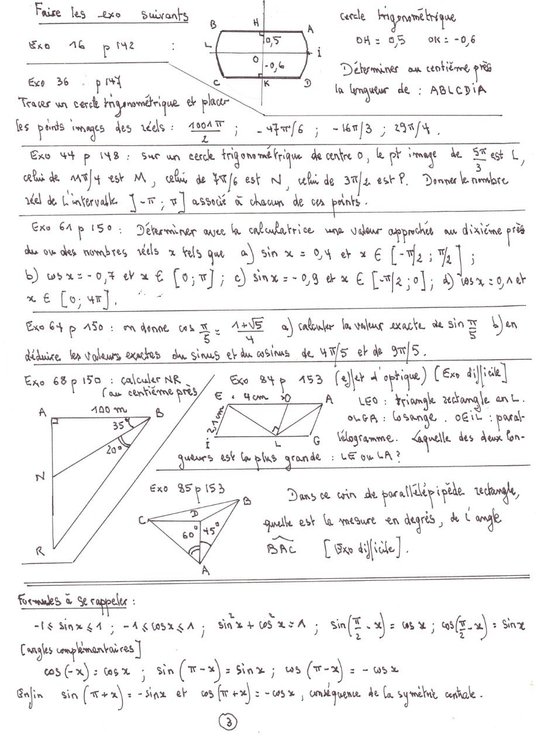 Faire les exo suivants
Exo 16 p 142 :
B H A
0,5
L O i
-0,6
C K D
cercle trigonométrique
OH = 0,5 OK = -0,6
Déterminer au centième près
la longueur de : ABLCDiA
Exo 36 p 147
Tracer un cercle trigonométrique et placer
les points images des réels : 1001π/2 ; -47π/6 ; -16π/3 ; 29π/4.
Exo 44 p 148 : sur un cercle trigonométrique de centre O, le pt image de 5π/3 est L,
celui de 11π/4 est M, celui de 7π/6 est N, celui de 3π/2 est P. Donner le nombre
réel de l'intervalle ]-π ; π] associé à chacun de ces points.
Exo 61 p 150 : Déterminer avec la calculatrice une valeur approchée au dixième près
du ou des nombres réels x tels que a) sin x = 0,4 et x ∈ [-π/2 ; π/2] ;
b) cos x = -0,7 et x ∈ [0 ; π] ; c) sin x = -0,9 et x ∈ [-π/2 ; 0] ; d) cos x = 0,1 et
x ∈ [0 ; 4π].
Exo 64 p 150 : on donne cos π/5 = (1+√5)/4 a) calculer la valeur exacte de sin π/5 b) en
déduire les valeurs exactes du sinus et du cosinus de 4π/5 et de 9π/5.
Exo 68 p 150 : calculer NR
(au centième près)
A 100 m B
35°
20°
N
R
Exo 84 p 153 (effet d'optique) (Exo difficile)
E 4 cm O A
2,1 cm
i L G
LEO : triangle rectangle en L.
OLGA : losange. OEiL : paral-
lélogramme. Laquelle des deux lon-
gueurs est la plus grande : LE ou LA ?
Exo 85 p 153
B
C D
60° 45°
A
Dans ce coin de parallélépipède rectangle,
quelle est la mesure en degrés, de l'angle
BAC [Exo difficile].
Formules à se rappeler :
-1 ≤ sin x ≤ 1 ; -1 ≤ cos x ≤ 1 ; sin²x + cos²x = 1 ; sin(π/2 - x) = cos x ; cos(π/2 - x) = sin x
[angles complémentaires]
cos(-x) = cos x ; sin (π-x) = sin x ; cos (π-x) = - cos x
Enfin sin (π+x) = -sin x et cos(π+x) = -cos x, conséquence de la symétrie centrale.
3